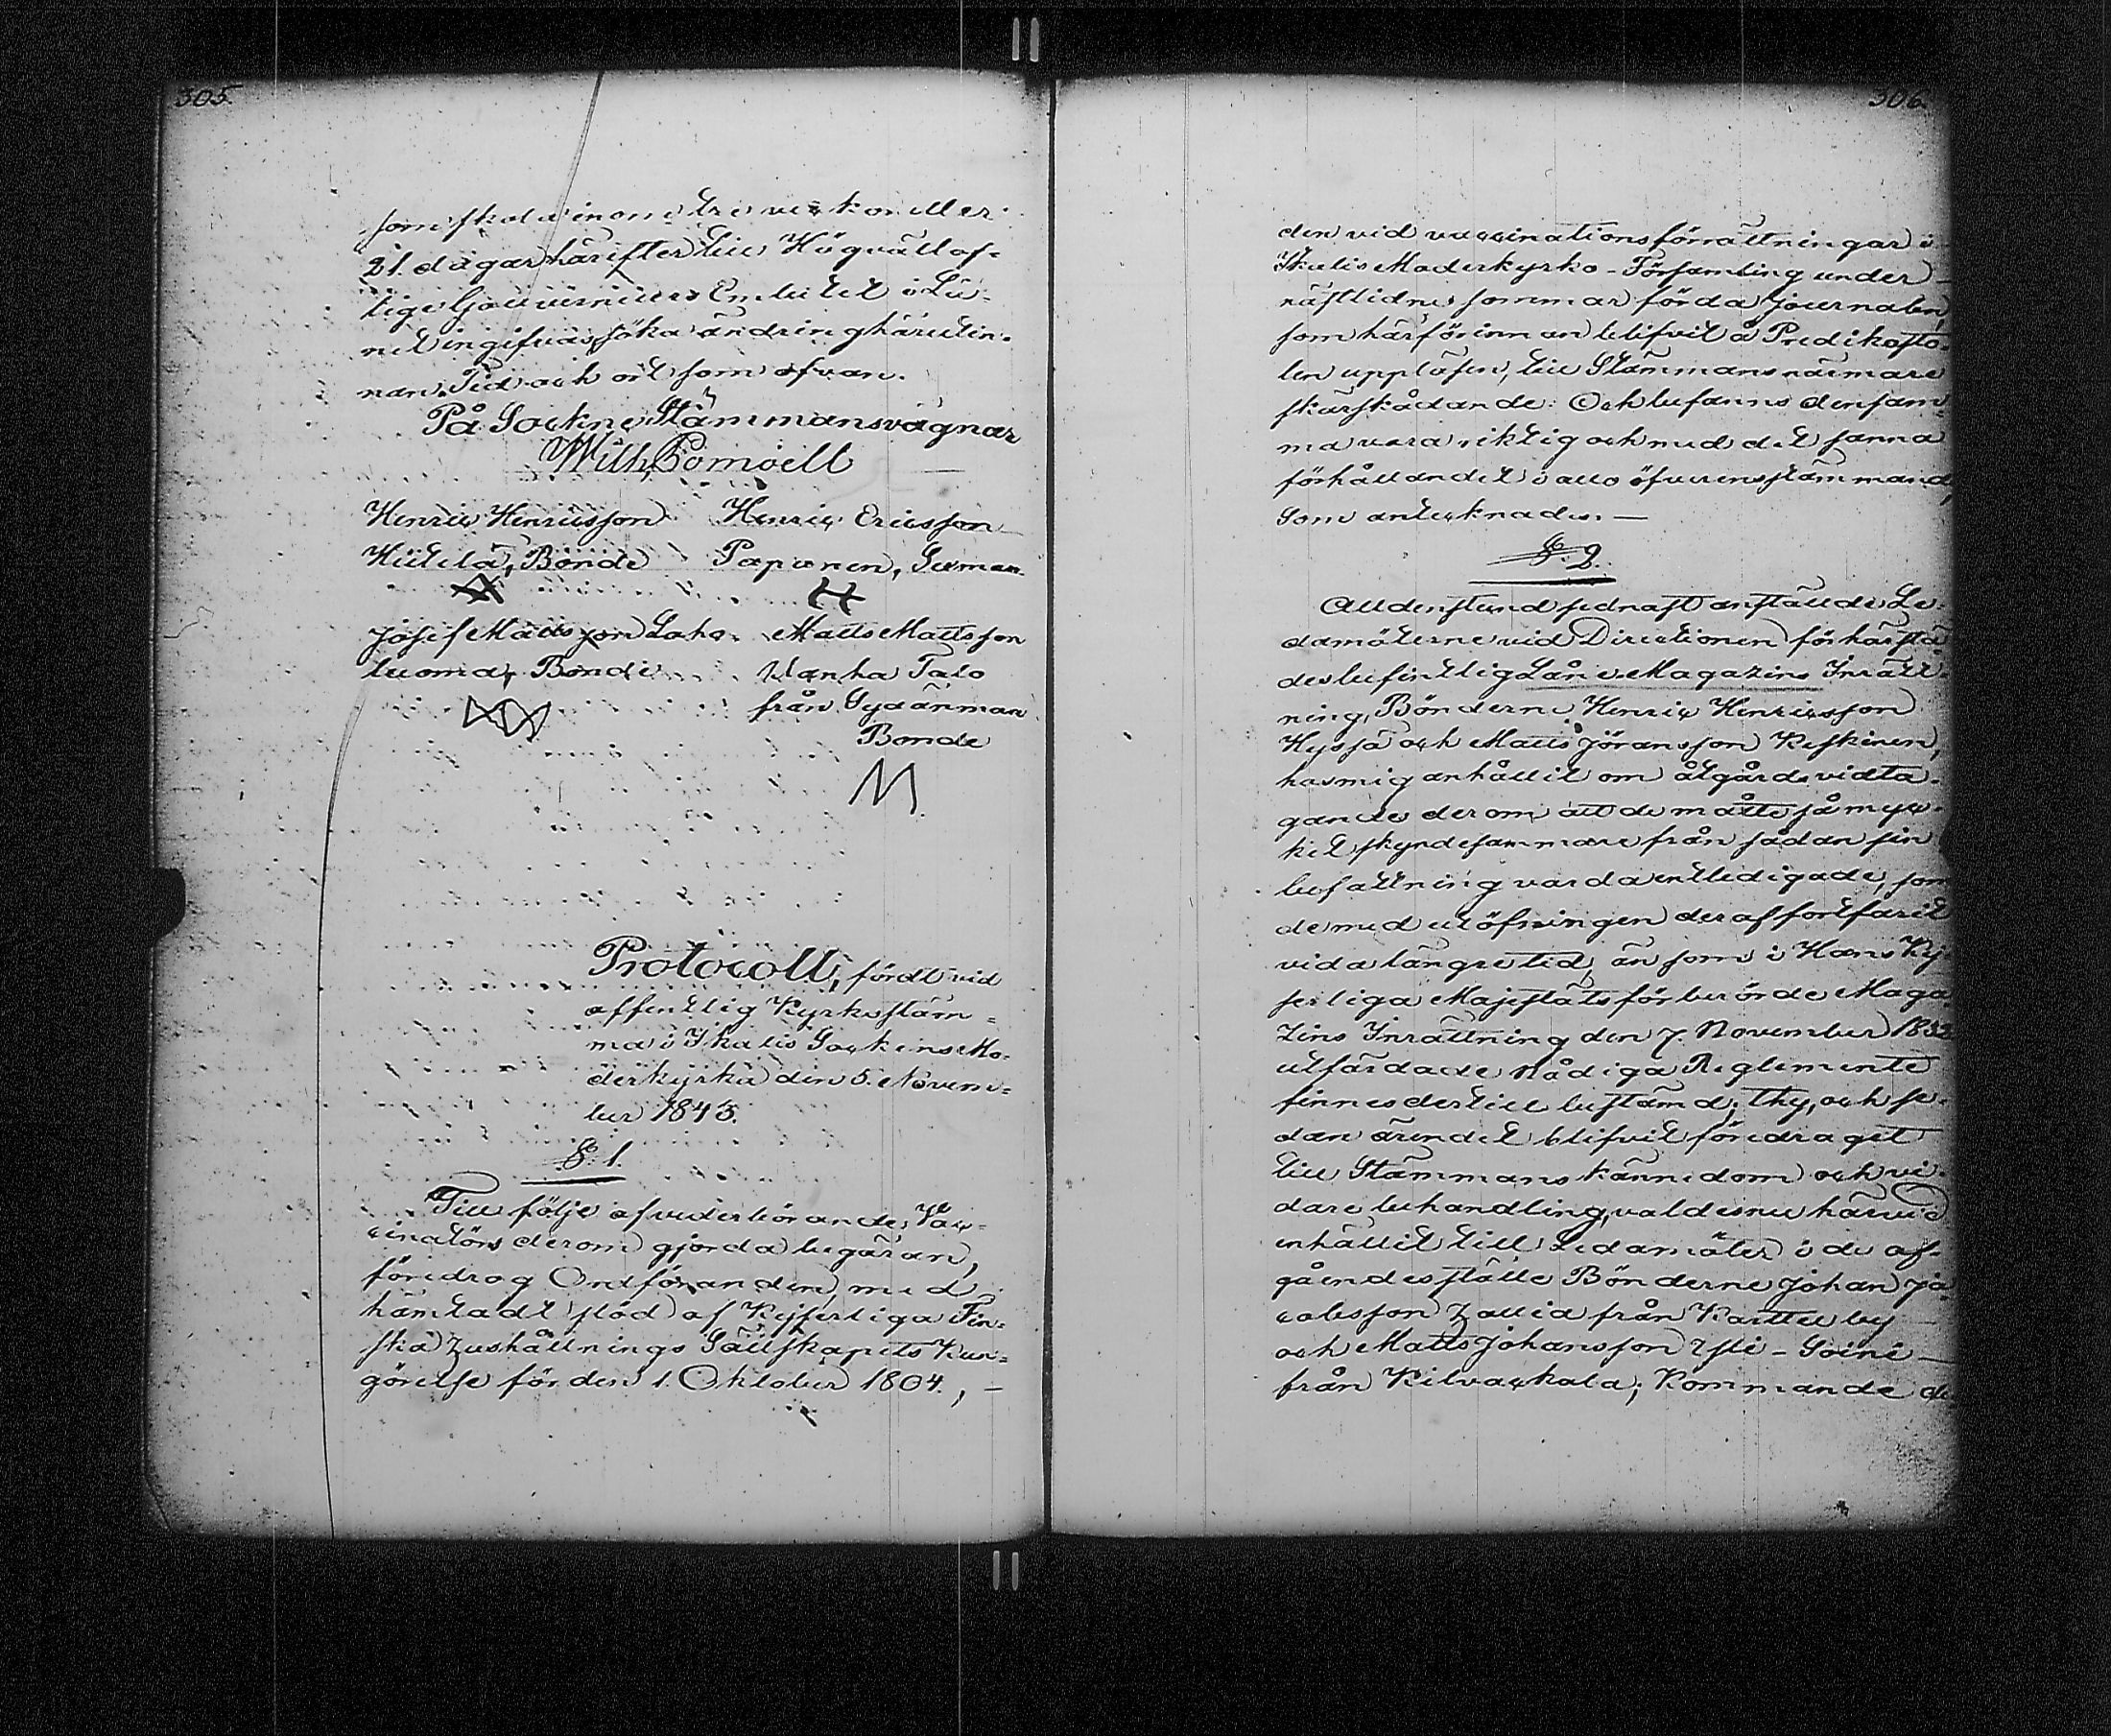 305.
som skola inom tre veckor eller
21. dagar härefter till Högvällof-
lige Gouverneurs Embetet i Lä-
net ingifvas, söka ändring härutin-
nan. Tid och ort som ofvan.
På Sockne Stämmans vägnar
Wilh.
Henric Henricsson Henric Ericsson
Bonde Paponen, Sexman.
Josef Mattsson Laho- Matts Mattsson
luoma, Bonde Wanha Talo
från Sydänmaa
Bonde
M.
Protocoll, fördt vid
offentlig Kyrkostäm-
ma i Ikalis Sockens Mo-
derkyrka den 5. Novem-
ber 1843.
§. 1.
Till följe af vederbörande Vac-
cinatörs derom gjorda begäran,
föredrog Ordföranden, med
hämtadt stöd af Kejserliga Fin-
ska Hushållnings Sällskapets Kun-
görelse för den 1. Oktober 1804., —
306.
den vid vaccinationsförrättningar i
Ikalis Moderkyrko-Församling under
nästlidne sommar förda Journalen,
som härförinnan blifvit å Predikosto-
len uppläsen, till Stämmans närmare
skärskådande: Och befanns densam-
ma vara riktig och med det sanna
förhållandet i allo öfverensstämmand,
som antecknades. —
§. 2.
Alldenstund sednast anställde Le-
damöterne vid Directionen för härstä-
des befintlig Låne Magazins Inrätt-
ning, Bönderne Henric Henricsson
Hyssä och Matts Jöransson Keskinen,
hos mig anhållit om åtgärds vidta-
gande derom att de måtte så myc-
ket skyndesammare från sådan sin
befattning varda entledigade, som
de med utöfningen deraf fortfarit
vida längre tid, än som i Hans Kej-
serliga Majestäts för berörde Maga-
zins Inrättning den 7. November 183
utfärdade nådiga Reglemente
finnes dertill bestämd; Thy, och se-
dan ärendet blifvit föredraget
till Stämmans kännedom och vi-
dare behandling, valdes nu härvid
enhälligt till Ledamöter i de af-
gåendes ställe Bönderne Johan Ja-
cobsson från Karttu by
och Matts Johansson Yli-Soini —
från Kilvackala; Kommande de